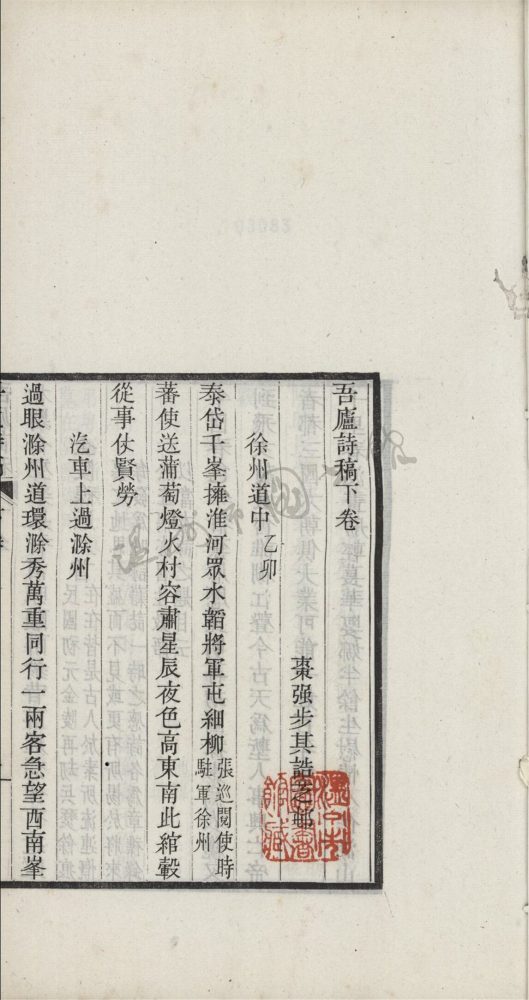 吾廬詩稿下卷
棗强步其誥芝邨
徐州道中 乙卯
泰岱千峯擁淮河眾水韜將軍屯細柳 張巡閱使時駐軍徐州
蕃使送蒲萄燈火村容肅星辰夜色高東南此綰轂
從事仗賢勞
汽車上過滁州
過眼滁州道環滁秀萬重同行一兩客急望西南峯
03083